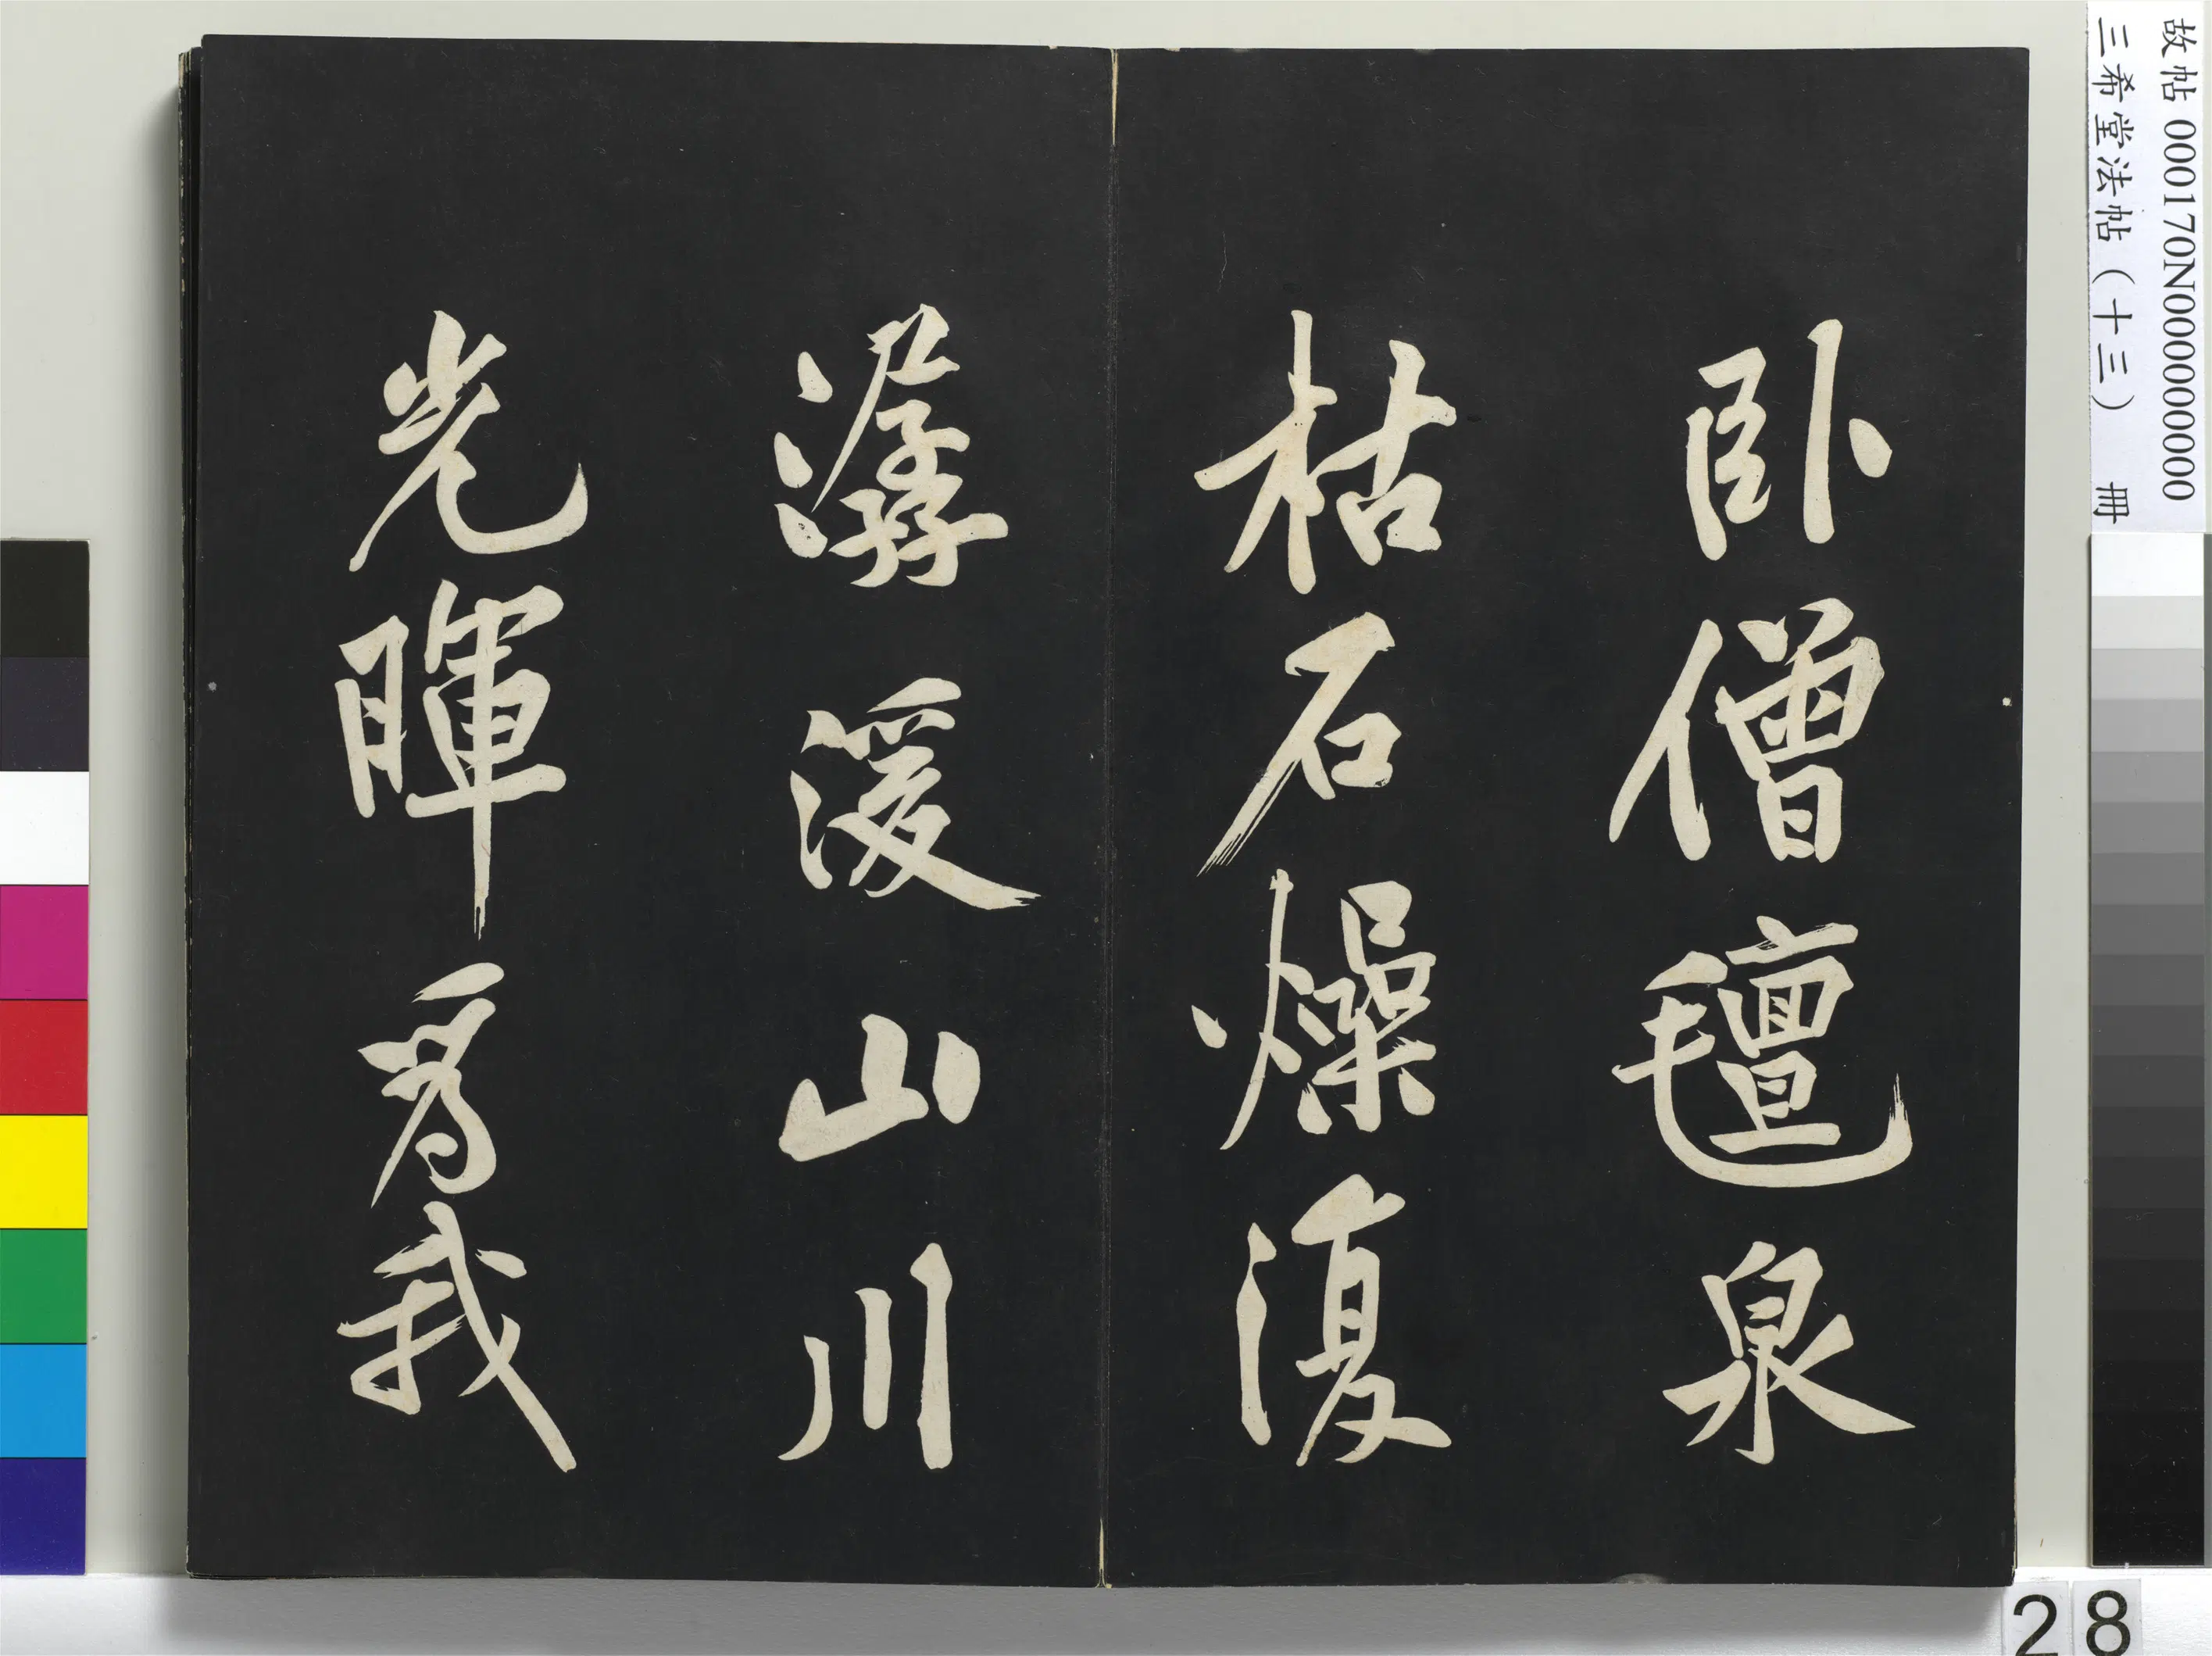 故帖 000170N000000000
三希堂法帖（十三） 冊
卧僧氊泉
枯石燥復
潺湲山川
光暉為我
28